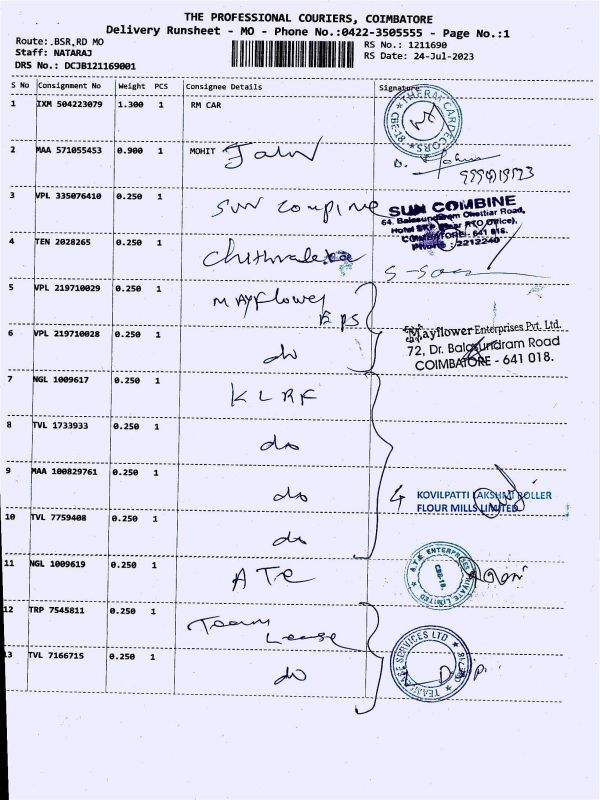 THE PROFESSIONAL COURIERS, COIMBATORE
Delivery Runsheet - MO - Phone No.:0422-3505555 - Page No.:1
Route:.BSR.RD MO
RS No.: 1211690
Staff: NATARAJ
RS Date: 24-Jul-2023
DRS No.: DCJB121169001
S No Consignment No Weight PCS Consignee Details Signature
1 IXM 504223079 1.300 1 RM CAR
THERM CAR DECORS
CBE-18.
2 MAA 571055453 0.900 1 MOHIT Jain
3 VPL 335076410 0.250 1 SUN Compine
SUN COMBINE
64, Balasundaram Chettiar Road,
Hotel SKP (Near RTO Office),
COIMBATORE - 641 018.
Phone : 2212240
4 TEN 2028265 0.250 1
5 VPL 219710029 0.250 1 MAYflower
EPS
6 VPL 219710028 0.250 1 do
Mayflower Enterprises Pvt. Ltd.
72, Dr. Balasundram Road
COIMBATORE - 641 018.
7 NGL 1009617 0.250 1 KLRF
8 TVL 1733933 0.250 1 do
9 MAA 100829761 0.250 1 do
4 KOVILPATTI LAKSHMI ROLLER
FLOUR MILLS LIMITED
10 TVL 7759408 0.250 1 do
11 NGL 1009619 0.250 1 ATE
A.T.E. ENTERPRISES PRIVATE LIMITED
CBE-18.
12 TRP 7545811 0.250 1 Team
Lease
TEAMLEASE SERVICES LTD
13 TVL 7166715 0.250 1 do